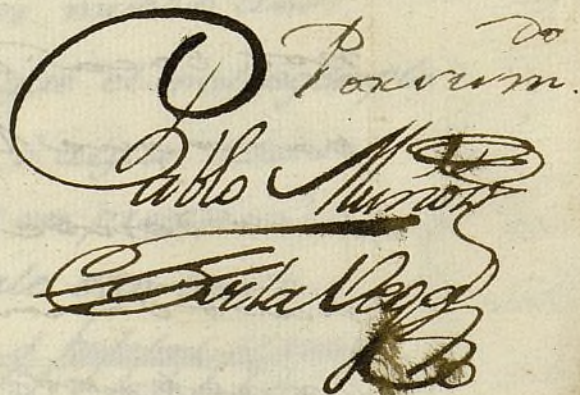 Por su m.do
Pablo Muñoz
de la Vega